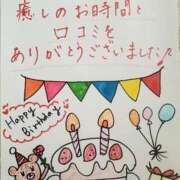 癒しのお時間と
口コミを
ありがとうございました♪
Happy
Birthday♪